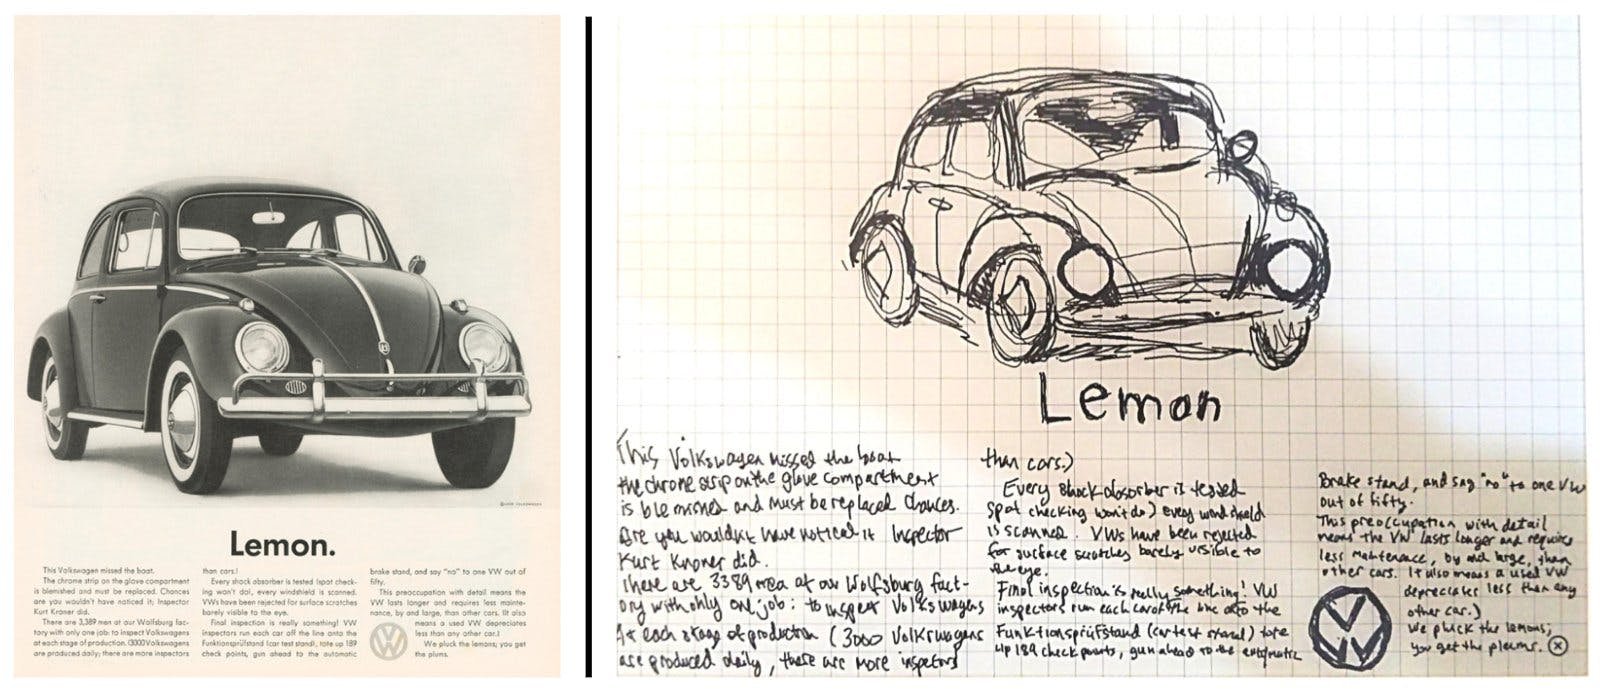 ©1960 VOLKSWAGEN
Lemon.
This Volkswagen missed the boat.
The chrome strip on the glove compartment
is blemished and must be replaced. Chances
are you wouldn't have noticed it; Inspector
Kurt Kroner did.
There are 3,389 men at our Wolfsburg fac-
tory with only one job: to inspect Volkswagens
at each stage of production. (3000 Volkswagens
are produced daily; there are more inspectors
than cars.)
Every shock absorber is tested (spot check-
ing won't do), every windshield is scanned.
VWs have been rejected for surface scratches
barely visible to the eye.
Final inspection is really something! VW
inspectors run each car off the line onto the
Funktionsprüfstand (car test stand), tote up 189
check points, gun ahead to the automatic
brake stand, and say "no" to one VW out of
fifty.
This preoccupation with detail means the
VW lasts longer and requires less mainte-
nance, by and large, than other cars. (It also
means a used VW depreciates
less than any other car.)
We pluck the lemons; you get
the plums.
Lemon
This Volkswagen missed the boat
the chrome strip on the glove compartment
is blemished and must be replaced Chances.
Are you wouldn't have noticed it Inspector
Kurt Kroner did.
There are 3389 men at our Wolfsburg fact-
ory with only one job: to inspect Volkswagens
At each stage of production (3000 Volkswagens
are produced daily, there are more inspectors
than cars.)
Every shock absorber is tested
spot checking won't do) every windshield
is scanned. VWs have been rejected
for surface scratches barely visible to
the eye.
Final inspection is really something! VW
inspectors run each car off the line onto the
Funktionsprüfstand (car test stand) tote
up 189 check points, gun ahead to the automatic
Brake stand, and say "no" to one VW
out of fifty.
This preoccupation with detail
means the VW lasts longer and requires
less maintenance, by and large, than
other cars. It also means a used VW
depreciates less than any
other car.)
We pluck the lemons;
you get the plums.